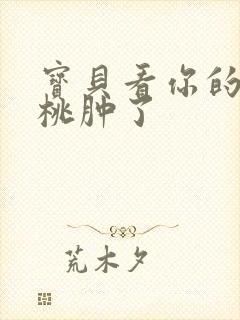 寳貝看你的
桃肿了
荒木夕